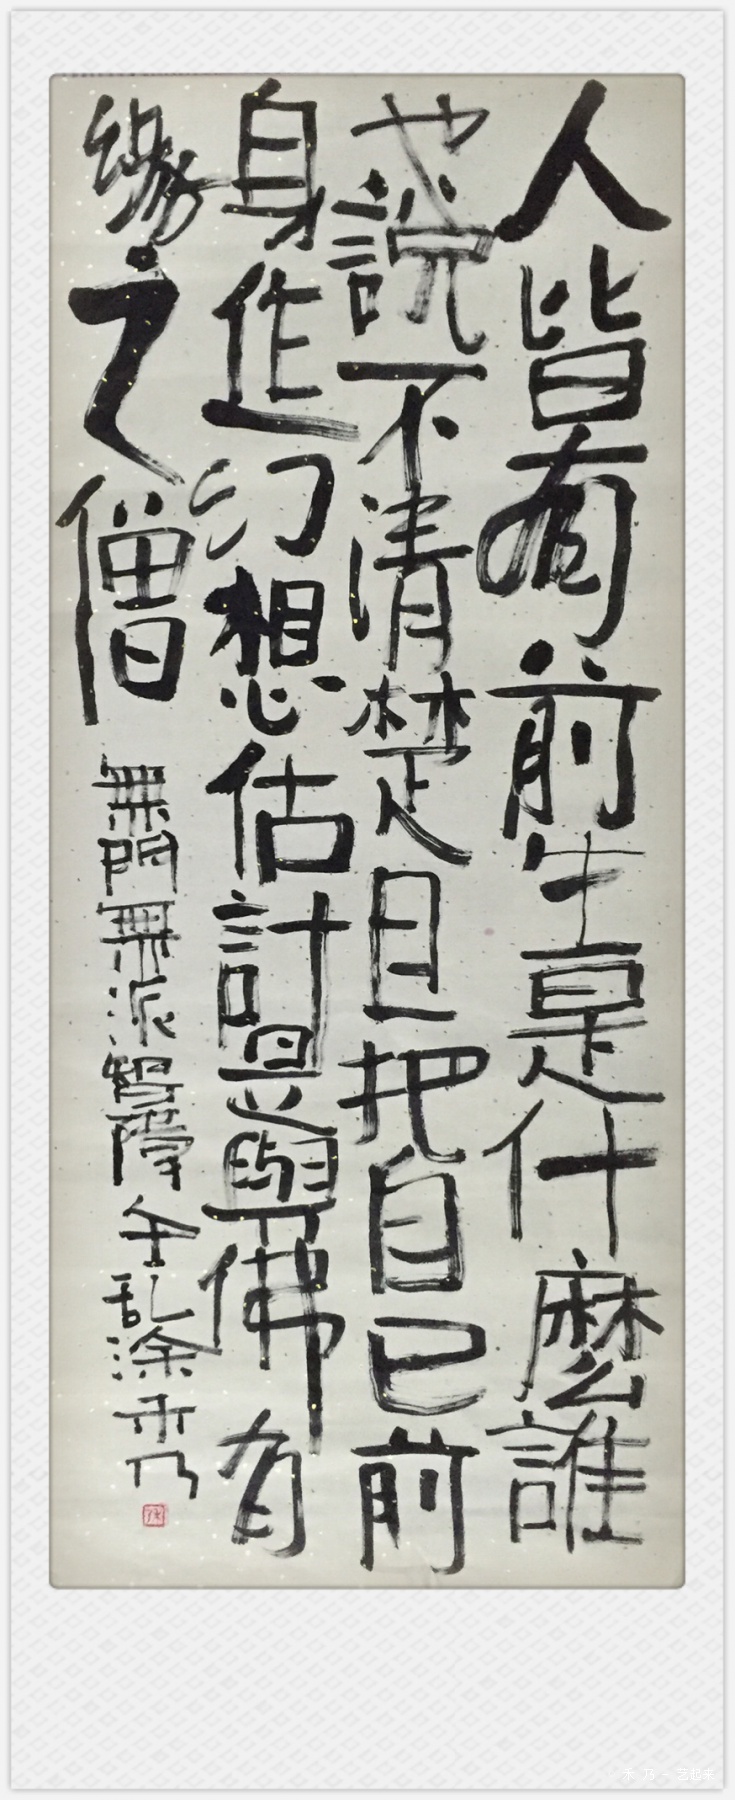 人皆有前生是什麼誰
也說不清楚但把自己前
身作幻想估計是與佛有
緣之僧
無門無派智障
午亂涂禾乃
禾乃-艺起来